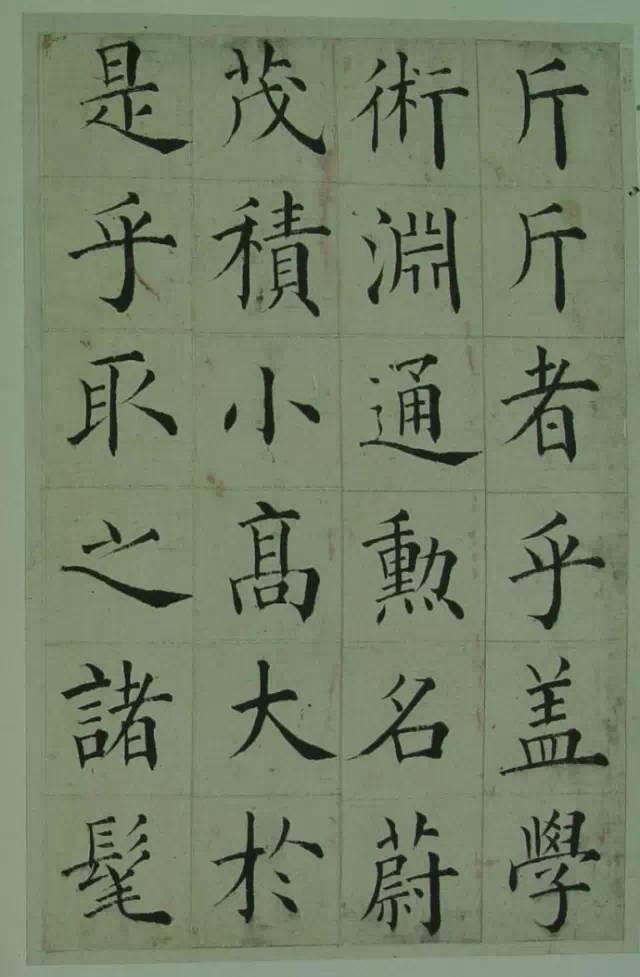 斤斤者乎盖學
術淵通勲名蔚
茂積小髙大於
是乎取之諸髦